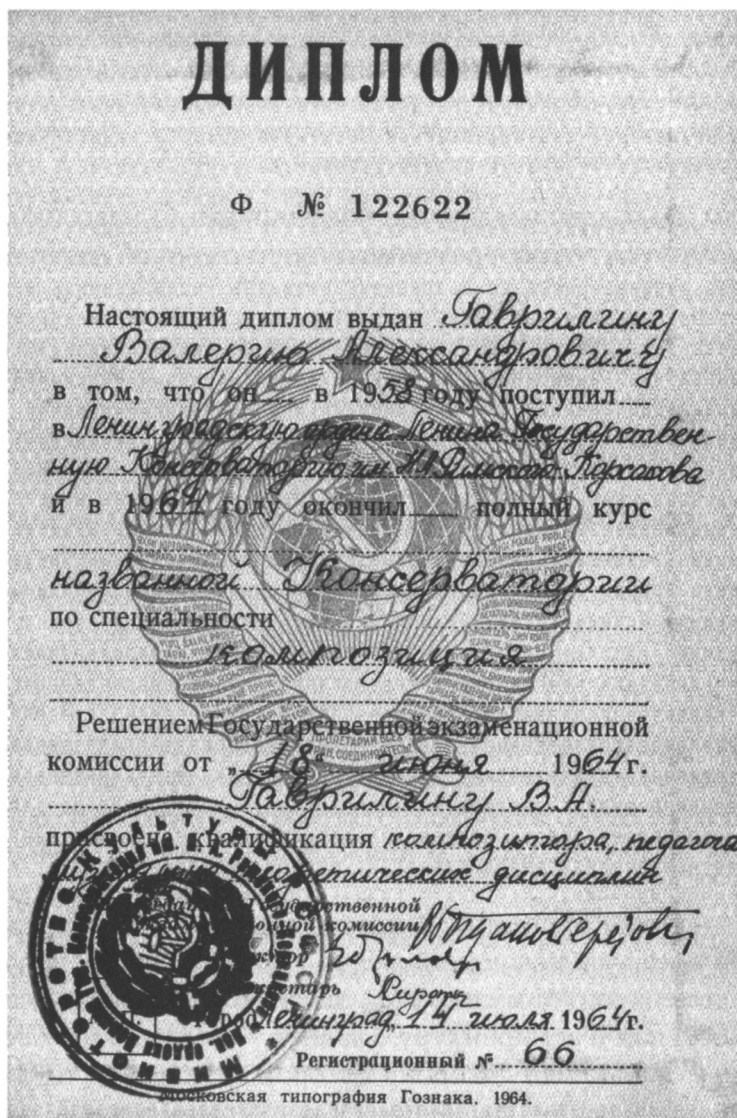 ДИПЛОМ
Ф № 122622
Настоящий диплом выдан Гаврилину
Валерию Александровичу
в том, что он в 1958 году поступил
в Ленинградскую ордена Ленина Государствен-
ную Консерваторию им. Н.А. Римского-Корсакова
и в 1964 году окончил полный курс
названной Консерватории
по специальности
композиция
Решением Государственной экзаменационной
комиссии от „18“ июня 1964 г.
Гаврилину В.А.
присвоена квалификация композитора, педагога
теоретических дисциплин
Государственной
комиссии
Город Ленинград, 14 июля 1964 г.
Регистрационный № 66
Московская типография Гознака. 1964.